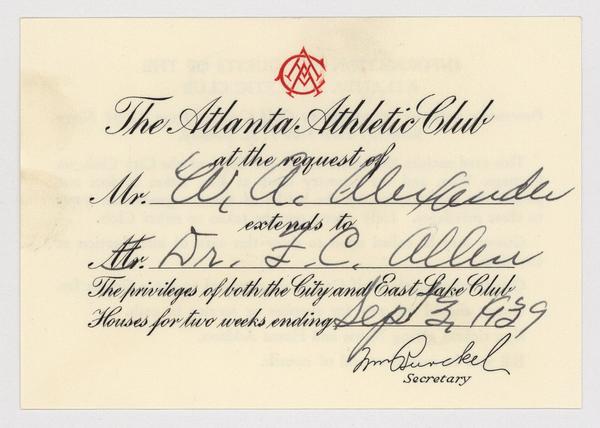 The Atlanta Athletic Club
at the request of
Mr. W. A. Alexander
extends to
Mr. Dr. F. C. Allen
The privileges of both the City and East Lake Club
Houses for two weeks ending Sept 3, 1939
Wm Burckel
Secretary